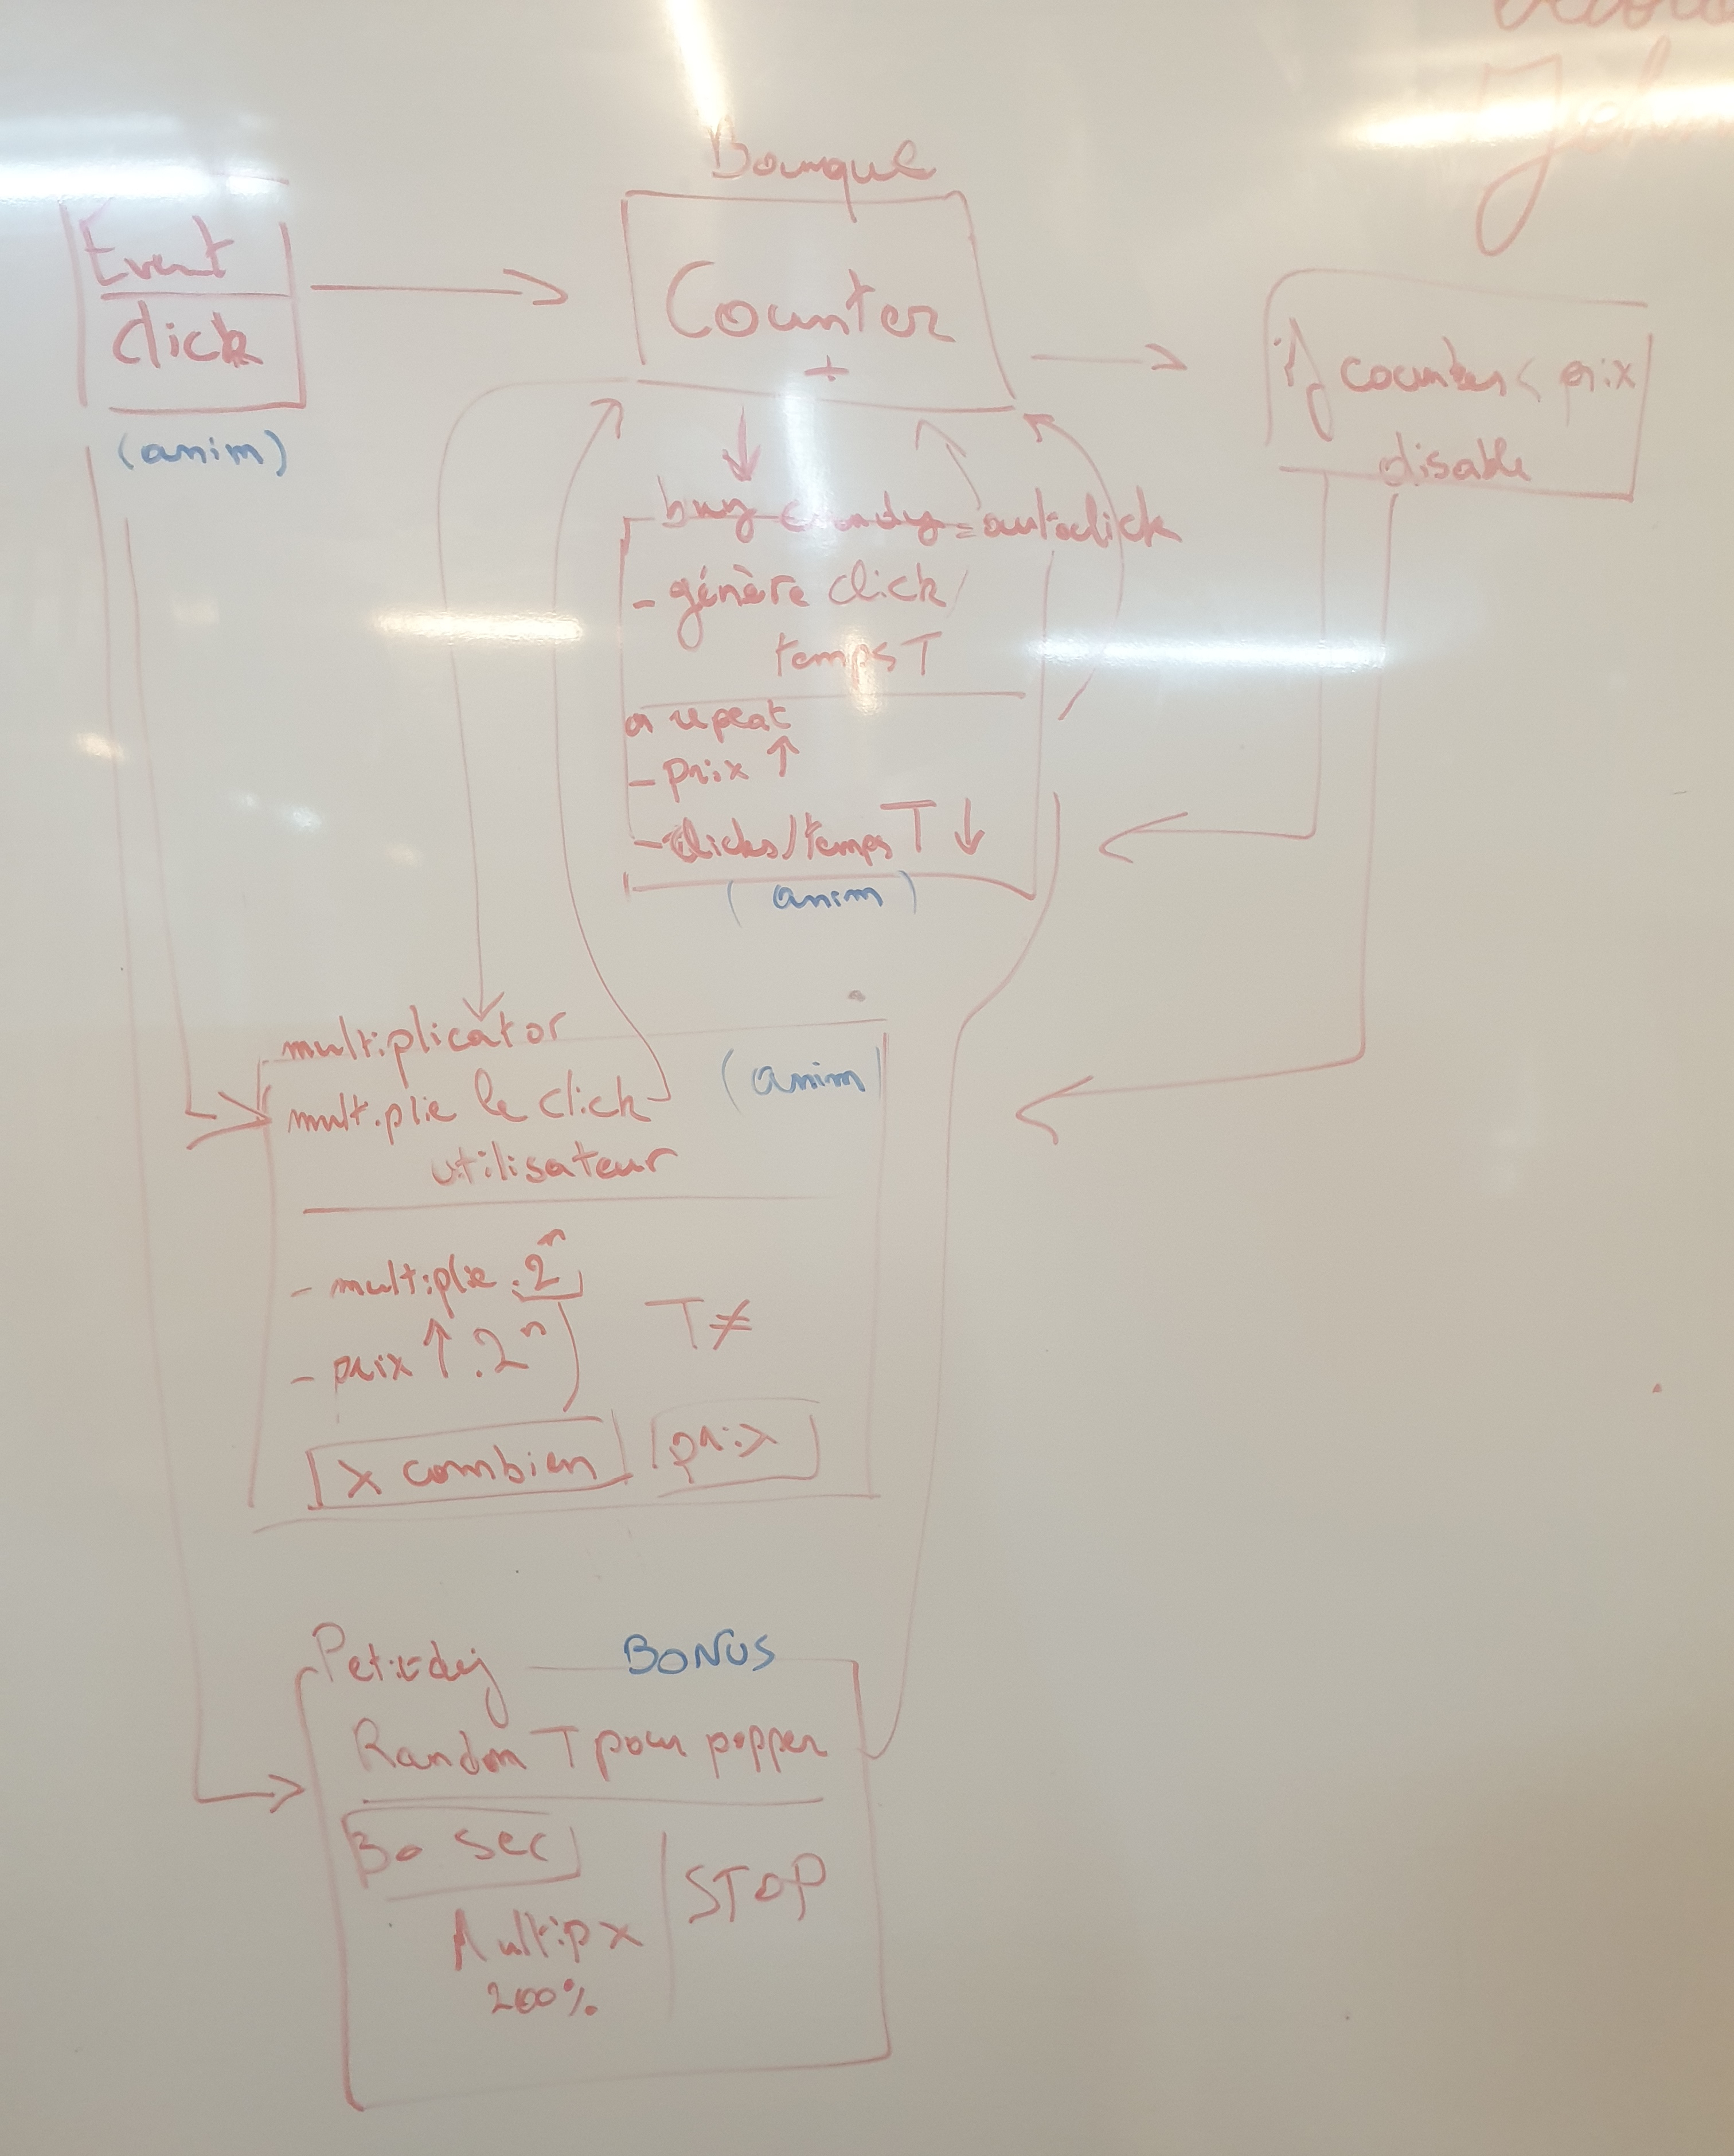 Event
Click
(anim)
Counter
+
if counter < prix
disable
buy candy = autoclick
- génère click /
temps T
a repeat
- prix ↑
- clicks/temps T ↓
(anim)
multiplicator
(anim)
multiplie le click
utilisateur
- multiplie .2ⁿ
- prix ↑ .2ⁿ
T ≠
x combien
prix
Petit dej
BONUS
Random T pour popper
30 sec
STOP
Multip x
200%